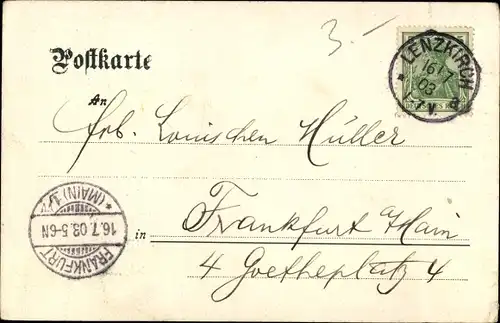 3.-
Postkarte
LENZKIRCH
16 7
03
V.
DEUTSCHES REICH
An
Frl. Louischen Müller
FRANKFURT (MAIN) 1
16.7.03. 5-6N
in Frankfurt a/Main
4 Goetheplatz 4